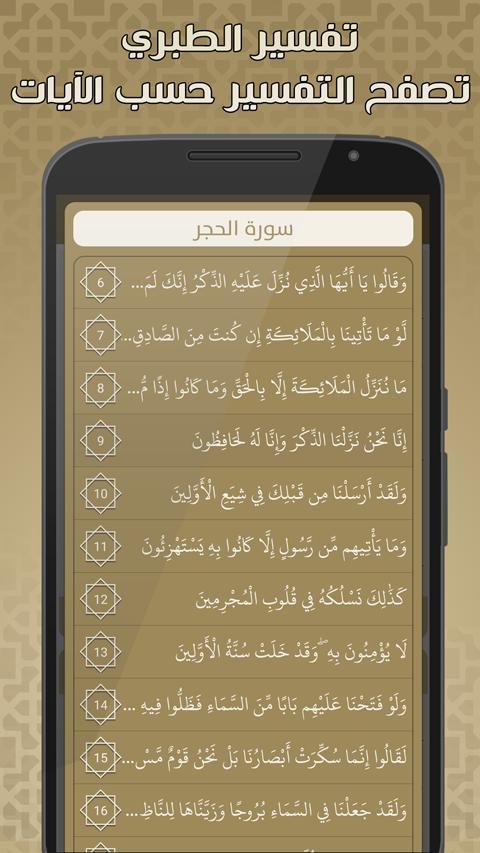 تفسير الطبري
تصفح التفسير حسب الآيات
سورة الحجر
وَقَالُوا يَا أَيُّهَا الَّذِي نُزِّلَ عَلَيْهِ الذِّكْرُ إِنَّكَ لَمَ... 6
لَّوْ مَا تَأْتِينَا بِالْمَلَائِكَةِ إِن كُنتَ مِنَ الصَّادِقِ... 7
مَا نُنَزِّلُ الْمَلَائِكَةَ إِلَّا بِالْحَقِّ وَمَا كَانُوا إِذًا مُّ... 8
إِنَّا نَحْنُ نَزَّلْنَا الذِّكْرَ وَإِنَّا لَهُ لَحَافِظُونَ 9
وَلَقَدْ أَرْسَلْنَا مِن قَبْلِكَ فِي شِيَعِ الْأَوَّلِينَ 10
وَمَا يَأْتِيهِم مِّن رَّسُولٍ إِلَّا كَانُوا بِهِ يَسْتَهْزِئُونَ 11
كَذَٰلِكَ نَسْلُكُهُ فِي قُلُوبِ الْمُجْرِمِينَ 12
لَا يُؤْمِنُونَ بِهِ ۖ وَقَدْ خَلَتْ سُنَّةُ الْأَوَّلِينَ 13
وَلَوْ فَتَحْنَا عَلَيْهِم بَابًا مِّنَ السَّمَاءِ فَظَلُّوا فِيهِ ... 14
لَقَالُوا إِنَّمَا سُكِّرَتْ أَبْصَارُنَا بَلْ نَحْنُ قَوْمٌ مَّسْ... 15
وَلَقَدْ جَعَلْنَا فِي السَّمَاءِ بُرُوجًا وَزَيَّنَّاهَا لِلنَّاظِ... 16